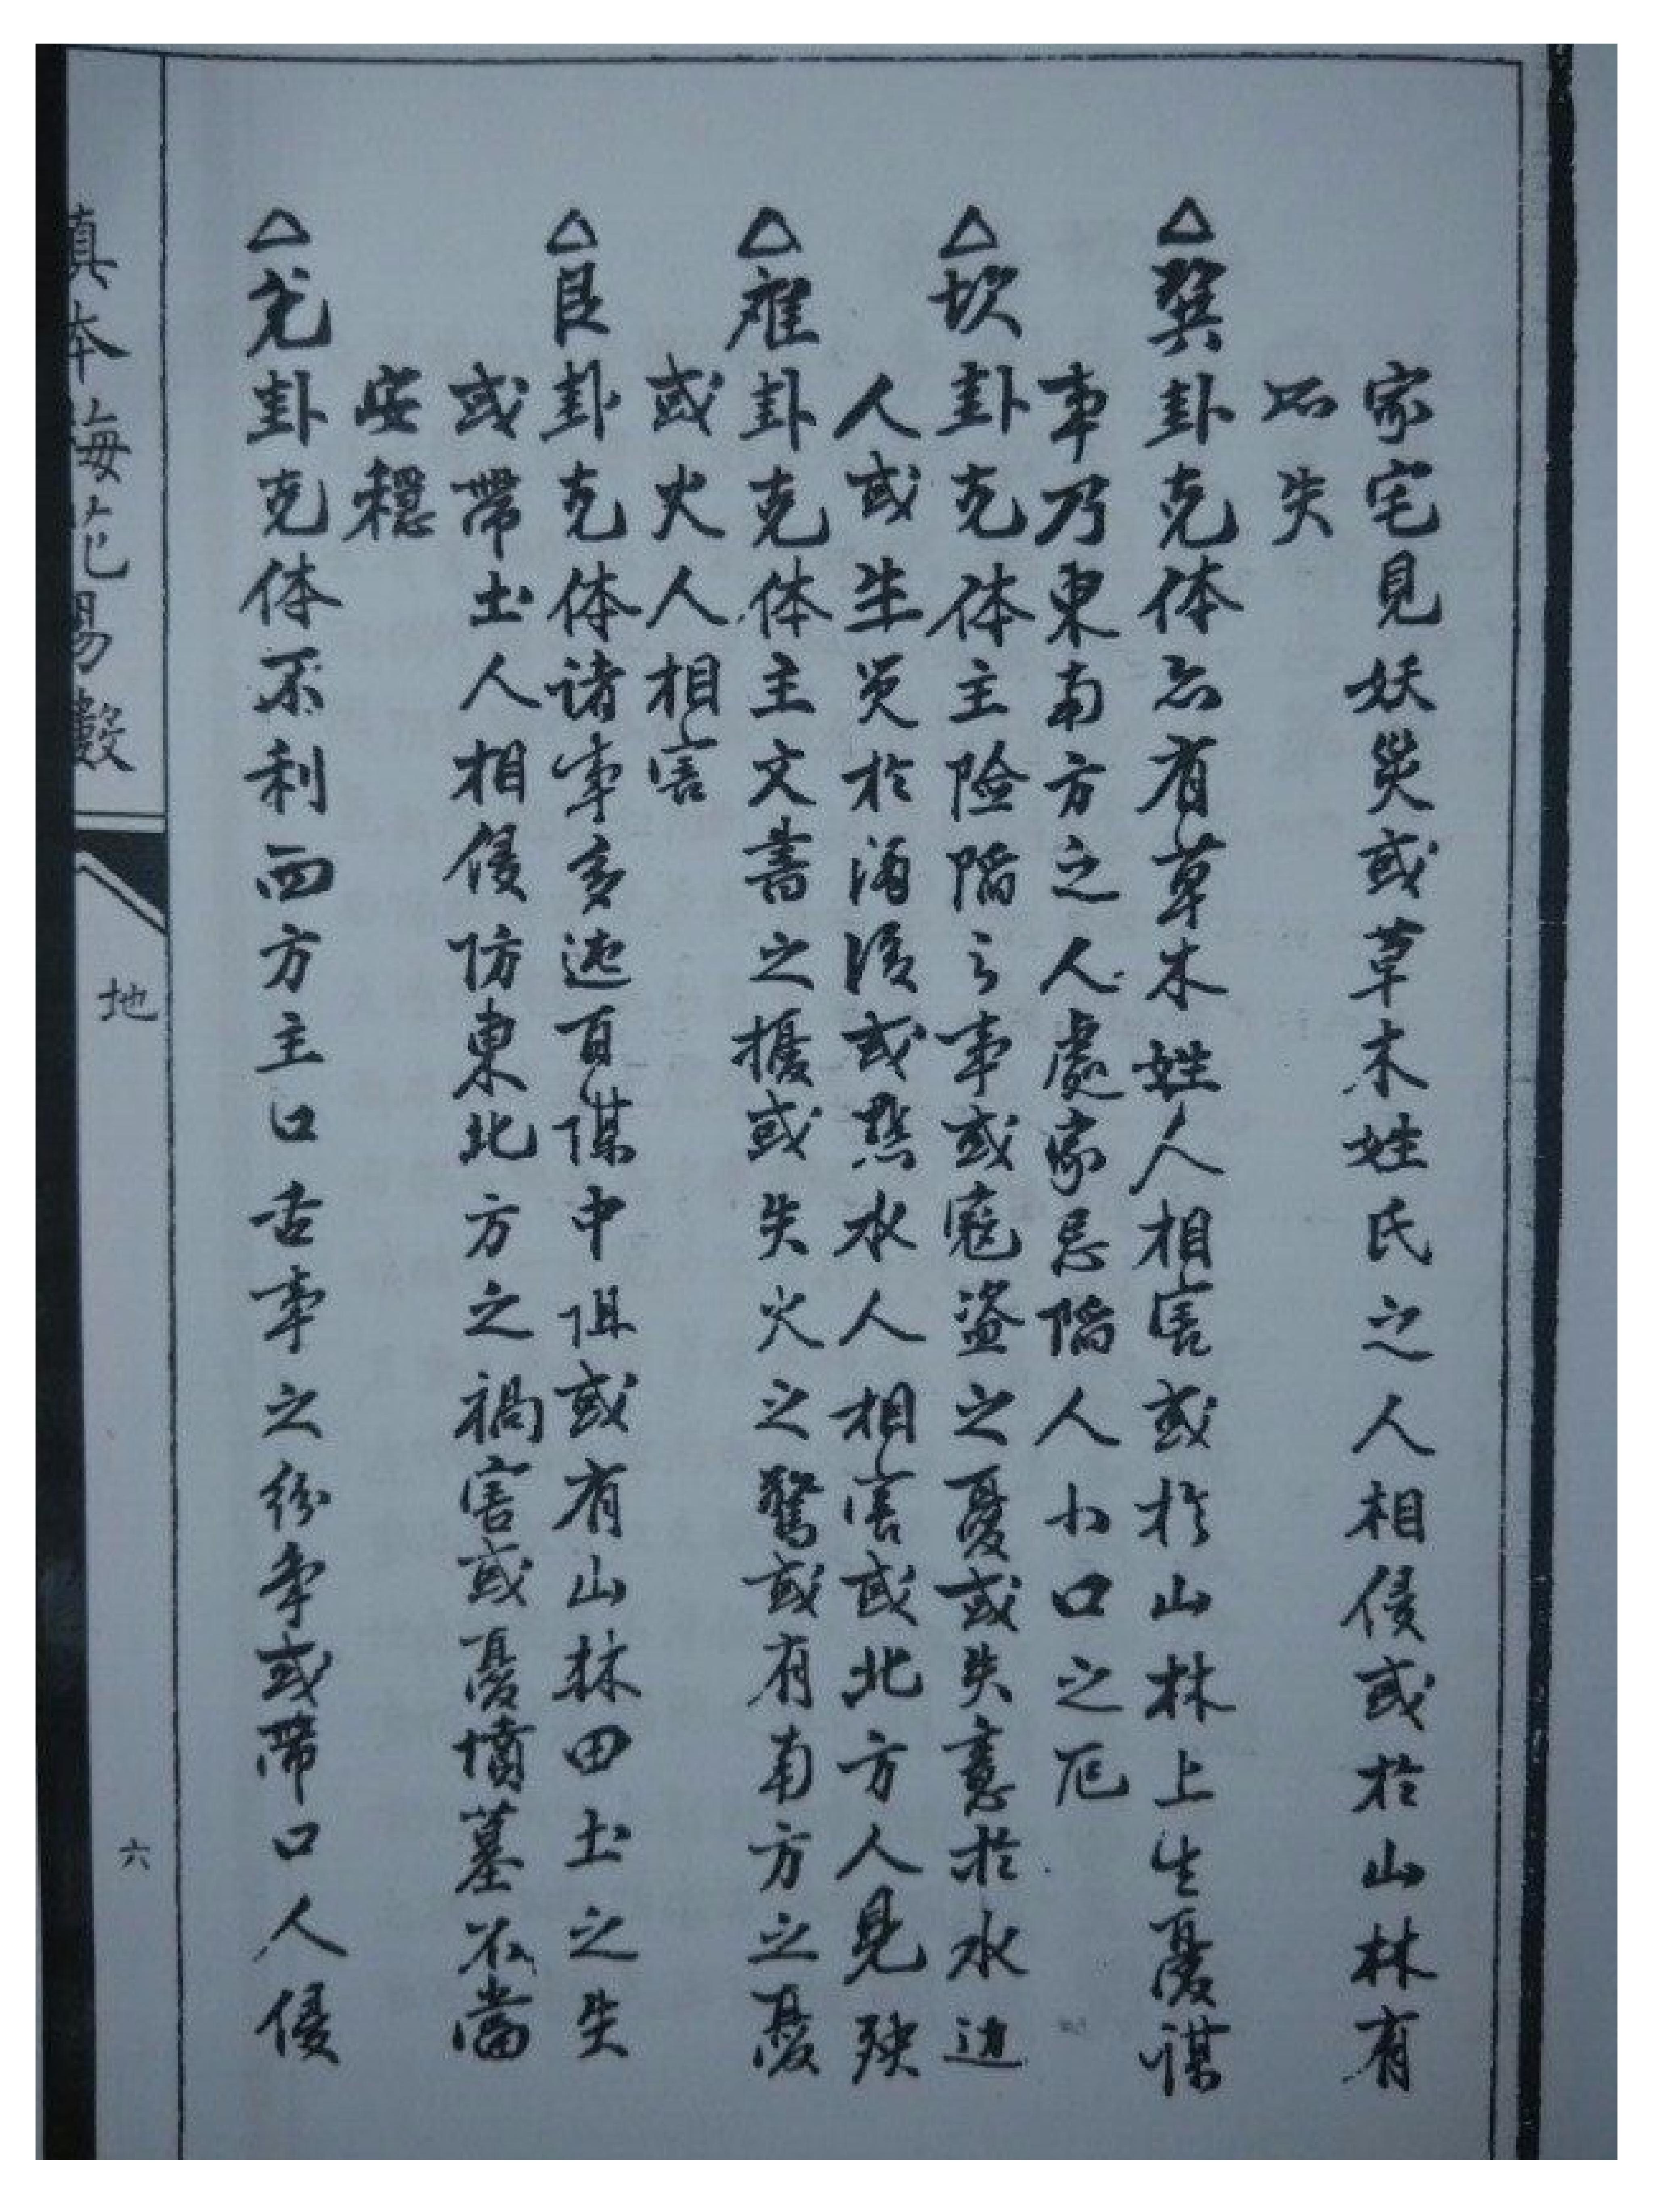 家宅見妖災或草木姓氏之人相侵或於山林有
所失
△巽卦克体亦有草木姓人相害或於山林上生憂謀
事乃東南方之人處家忌陷人小口之厄
△坎卦克体主险陷之事或寇盗之憂或失意於水边
人或生災於酒後或點水人相害或北方人見殃
△离卦克体主文書之擾或失火之驚或有南方之憂
或火人相害
△艮卦克体诸事多迍百謀中阻或有山林田土之失
或帶土人相侵防東北方之禍害或憂墳墓不當
安穩
△兑卦克体不利西方主口舌事之纷争或帶口人侵
真本梅花易數
地
六